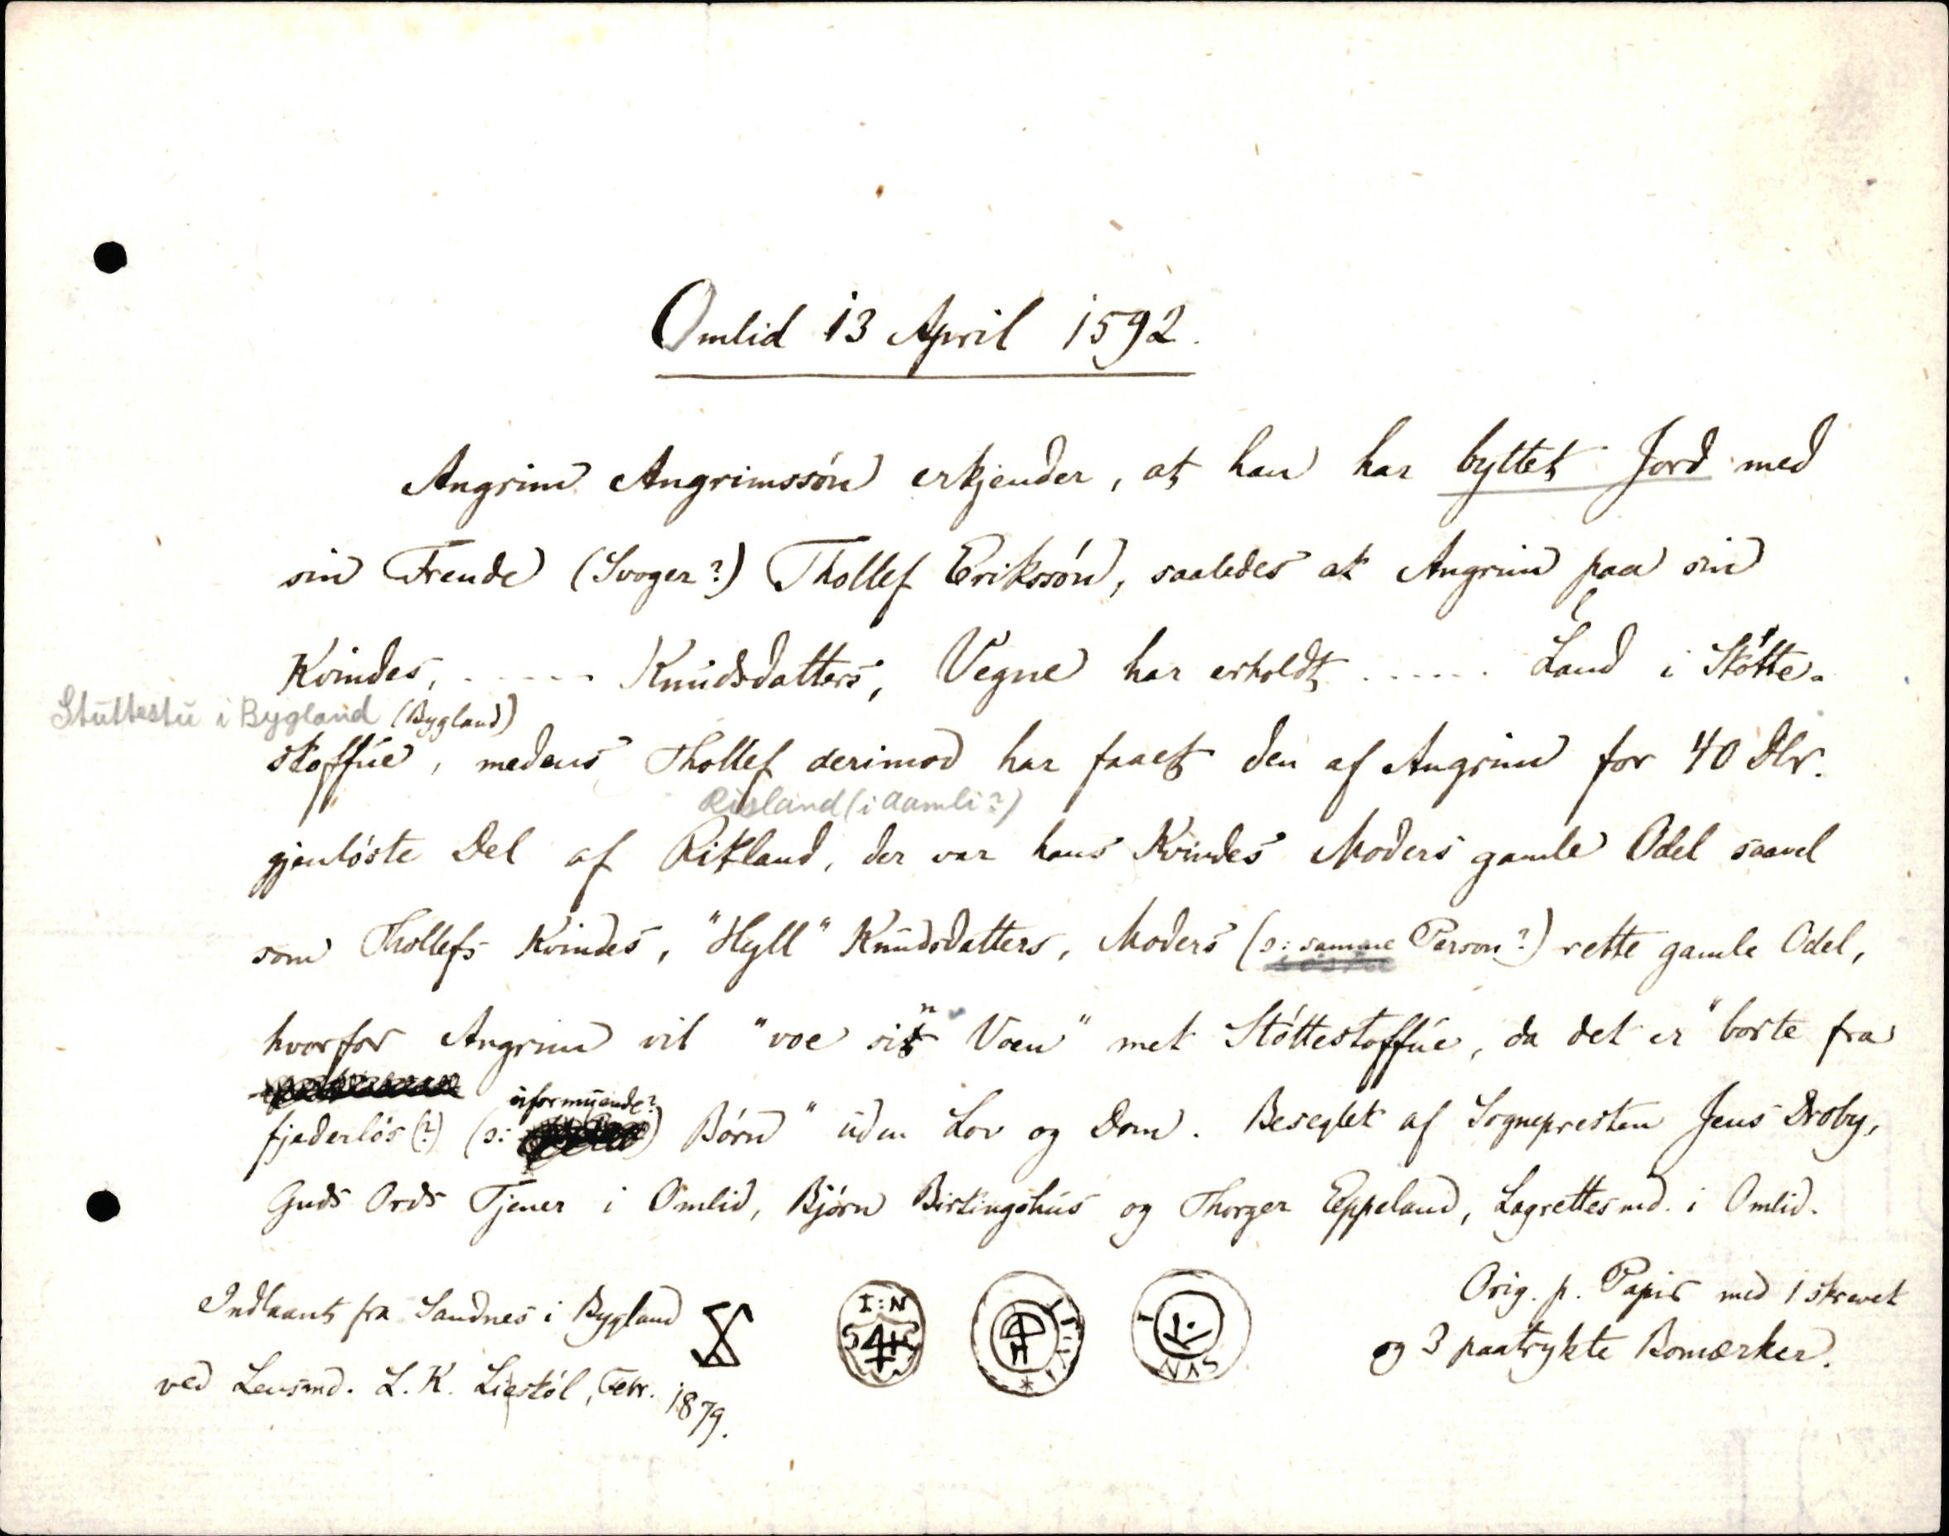 Omlid 13 April 1592.
Angrim Angrimssón erkjender, at han har byttet Jord med
sin Frende (Svoger?) Thollef Erikssón, saaledes at Angrim paa sin
Kvindes, ..... Knudsdatters, Vegne har erholdt ...... Land i Stótte-
Stuttestu i Bygland (Bygland)
stoffue, medens Thollef derimod har faaet den af Angrim for 40 Dlr.
Risland (i Aamli?)
gjenlóste Del af Rikland, der var hans Kvindes Moders gamle Odel saavel
som Thollefs Kvindes, "Hyll" Knudsdatters, Moders (ɔ: samme Person?) rette gamle Odel,
hvorfor Angrim vil "voe sin Voen" met Stóttestoffue, da det er "borte fra
uformuende?
fjederlós (?) (ɔ: ) Bórn" uden Lov og Dom. Beseglet af Sognepresten Jens Droby,
Guds Ords Tjener i Omlid, Bjórn Birkingshus og Thorger Eppeland, Lagrettesmd. i Omlid.
Indlaant fra Sandnes i Bygland
ved Lensmd. L. K. Liestól, Febr. 1879.
I:N
Orig. p. Papir med 1 skrevet
og 3 paatrykte Bomærker.